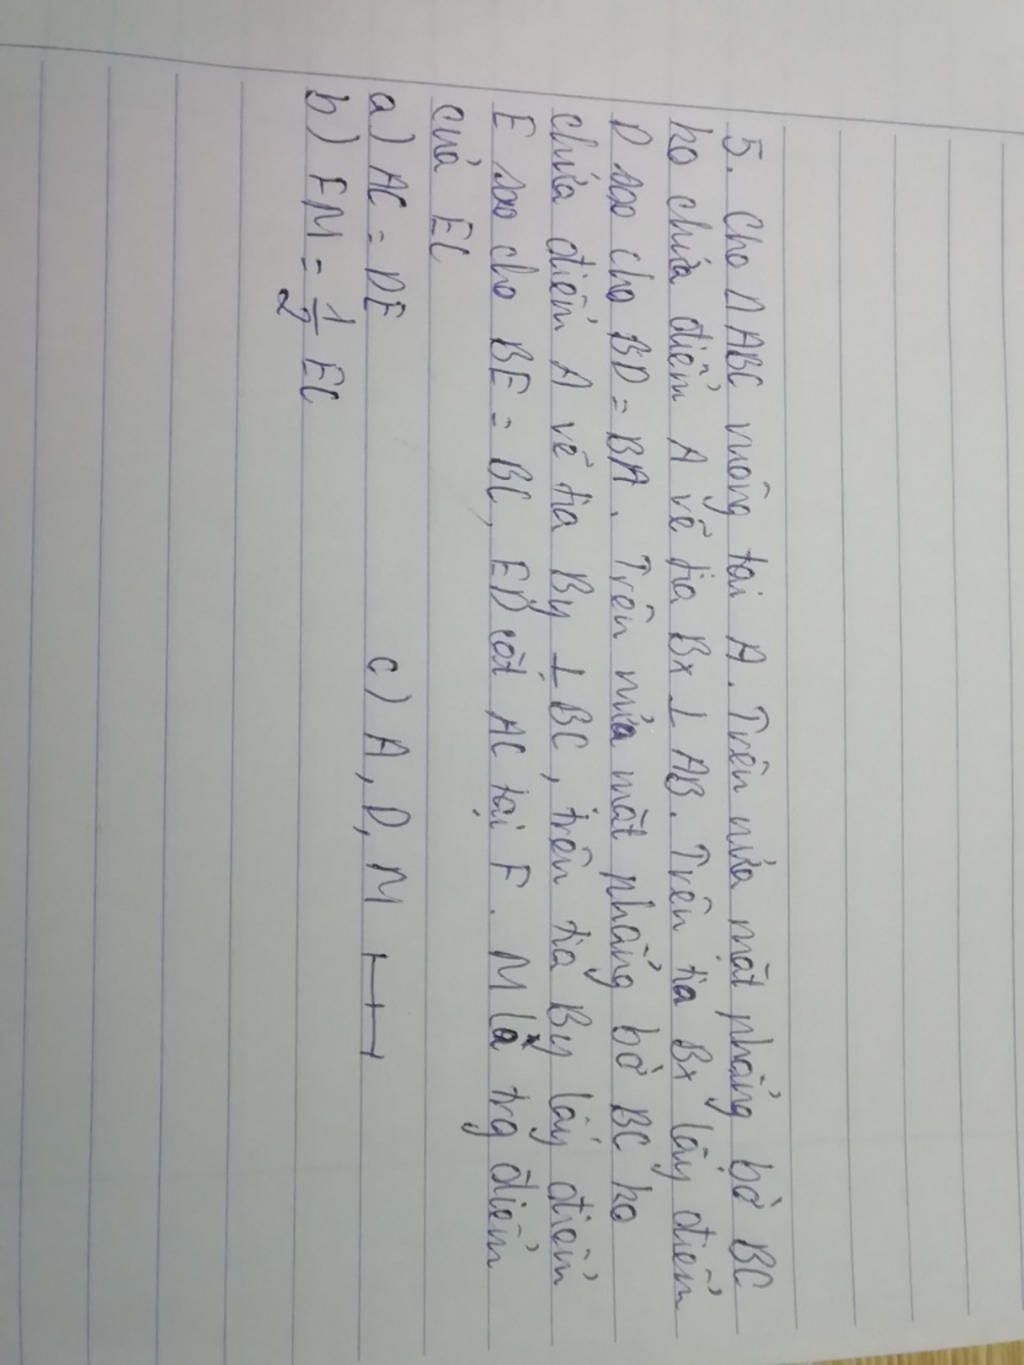 5. Cho △ABC vuông tại A. Trên nửa mặt phẳng bờ BC
ko chứa điểm A vẽ tia Bx ⊥ AB. Trên tia Bx lấy điểm
D sao cho BD = BA. Trên nửa mặt phẳng bờ BC ko
chứa điểm A vẽ tia By ⊥ BC, trên tia By lấy điểm
E sao cho BE = BC, ED cắt AC tại F. M là trg điểm
của EC
a) AC = DE c) A, D, M
b) FM = 1/2 EC